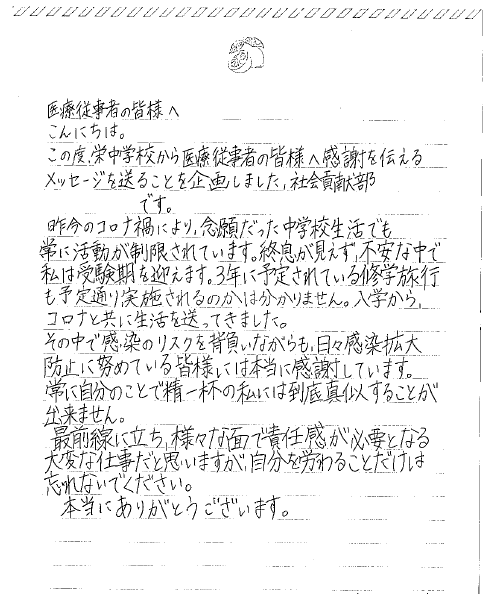 医療従事者の皆様へ
こんにちは。
この度、栄中学校から医療従事者の皆様へ感謝を伝える
メッセージを送ることを企画しました、社会貢献部
です。
昨今のコロナ禍により、念願だった中学校生活でも
常に活動が制限されています。終息が見えず、不安な中で
私は受験期を迎えます。3年に予定されている修学旅行
も予定通り実施されるのかは分かりません。入学から、
コロナと共に生活を送ってきました。
その中で感染のリスクを背負いながらも、日々感染拡大
防止に努めている皆様には本当に感謝しています。
常に自分のことで精一杯の私には到底真似することが
出来ません。
最前線に立ち、様々な面で責任感が必要となる
大変な仕事だと思いますが、自分を労わることだけは
忘れないでください。
本当にありがとうございます。